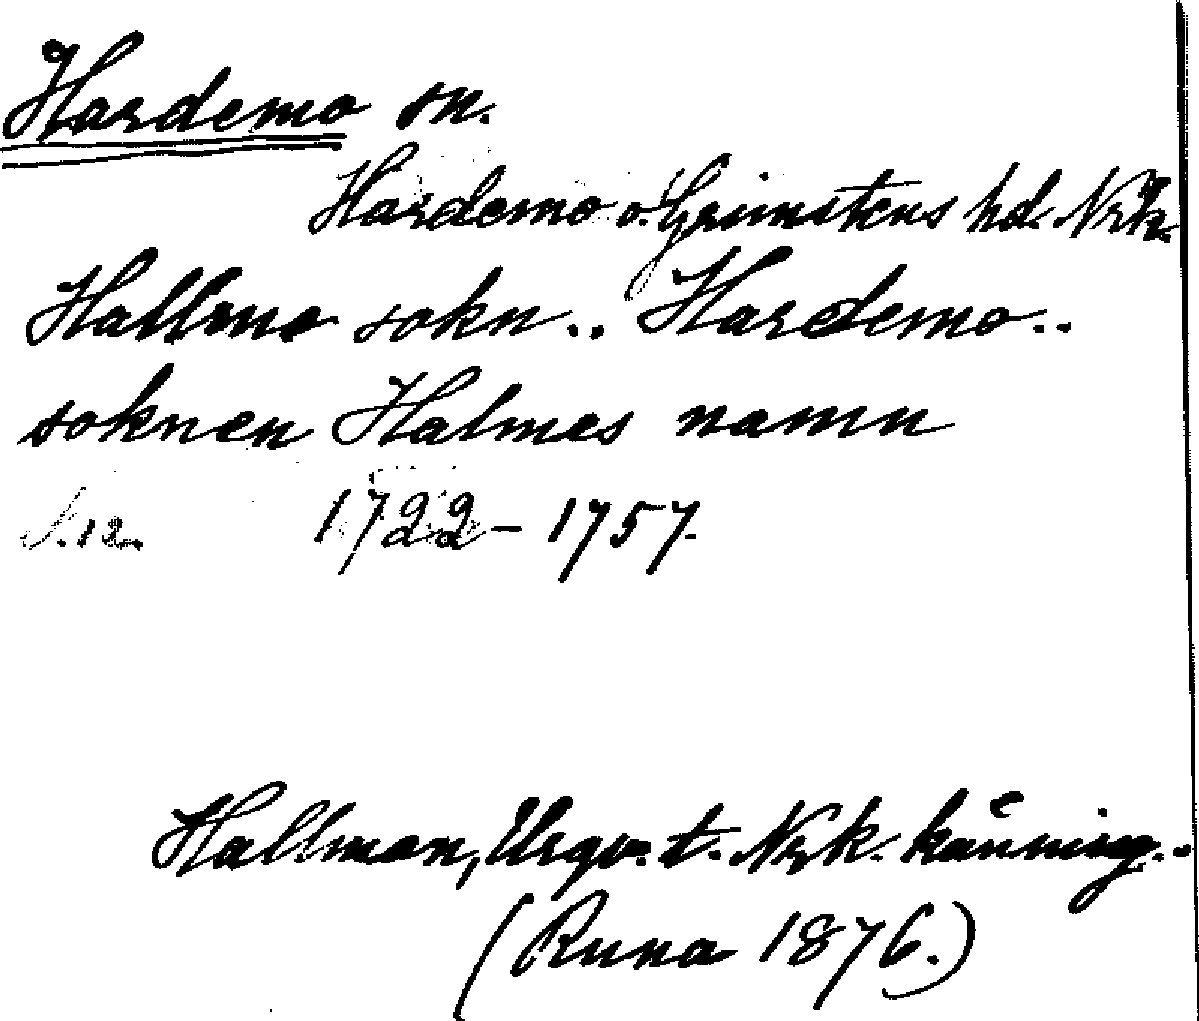 Hardemo sn.
Hardemo o. Grimstens hd. Nrk.
Hallmo sokn.. Hardemo..
soknen Halmes namn
S. 12. 1722 - 1757.
Hallman, Urgv. t. Nrk. känning..
(Runa 1876.)